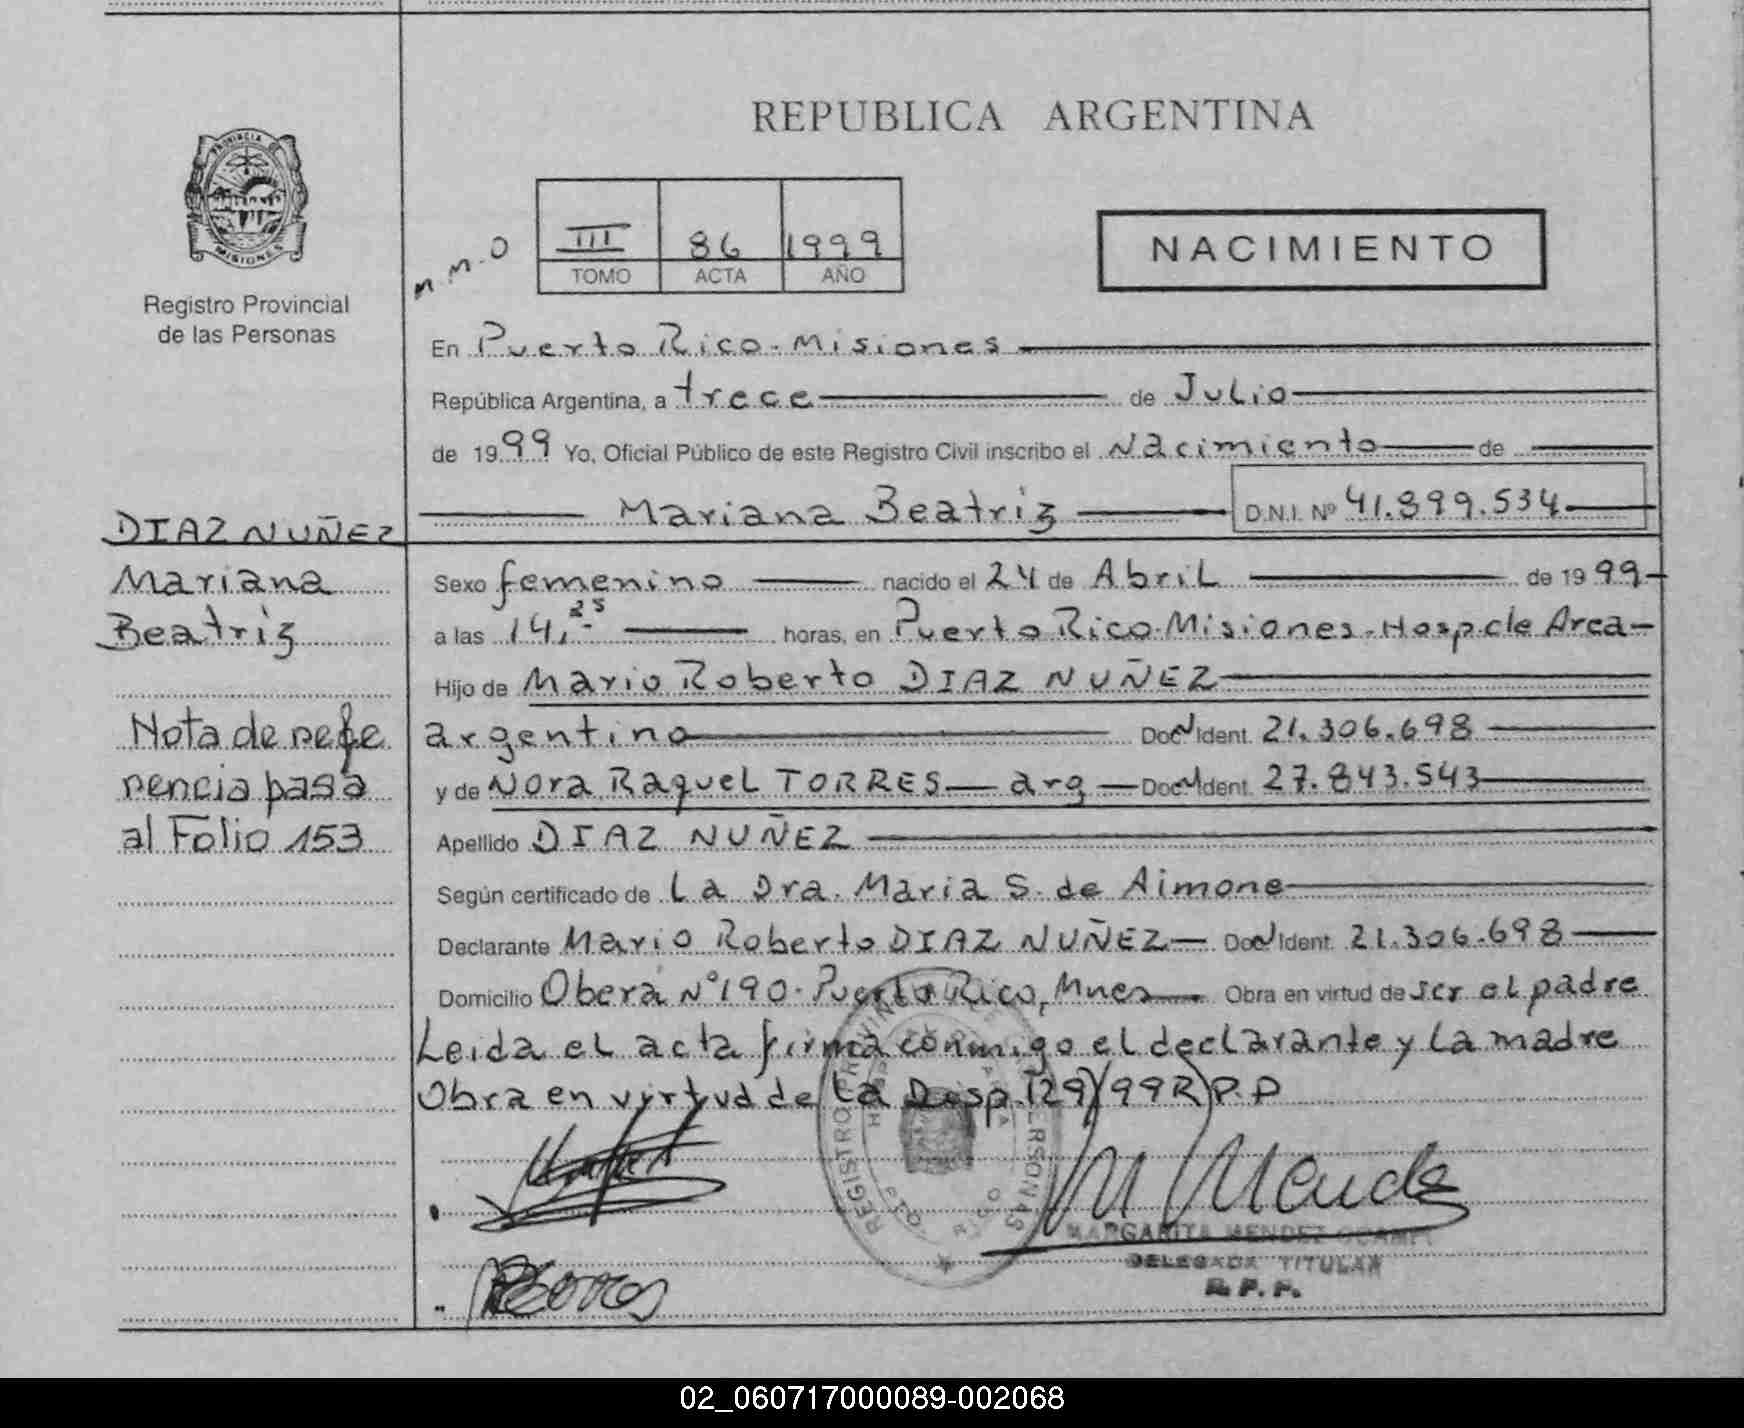 REPUBLICA ARGENTINA
PROVINCIA DE
MISIONES
Registro Provincial
de las Personas
M.M.O
III 86 1999
TOMO ACTA AÑO
NACIMIENTO
En Puerto Rico. Misiones
República Argentina, a trece de Julio
de 1999 Yo, Oficial Público de este Registro Civil inscribo el Nacimiento de
Mariana Beatriz D.N.I. Nº 41.899.534
DIAZ NUÑEZ
Mariana
Beatriz
Nota de refe
rencia pasa
al Folio 153
Sexo femenino nacido el 24 de Abril de 1999
a las 14,25 horas, en Puerto Rico. Misiones. Hosp. de Area
Hijo de Mario Roberto DIAZ NUÑEZ
argentino Doc N Ident. 21.306.698
y de Nora Raquel TORRES arg Doc N Ident. 27.843.543
Apellido DIAZ NUÑEZ
Según certificado de La Dra. Maria S. de Aimone
Declarante Mario Roberto DIAZ NUÑEZ Doc N Ident. 21.306.698
Domicilio Oberá Nº 190. Puerto Rico, Mnes Obra en virtud de ser el padre
Leida el acta firma conmigo el declarante y la madre
Obra en virtud de la Disp. 129/99 R.P.P
REGISTRO PROVINCIAL DE LAS PERSONAS
PTO RICO
M Mende
MARGARITA MENDEZ OCAMPO
DELEGADA TITULAR
R.P.P.
02_060717000089-002068